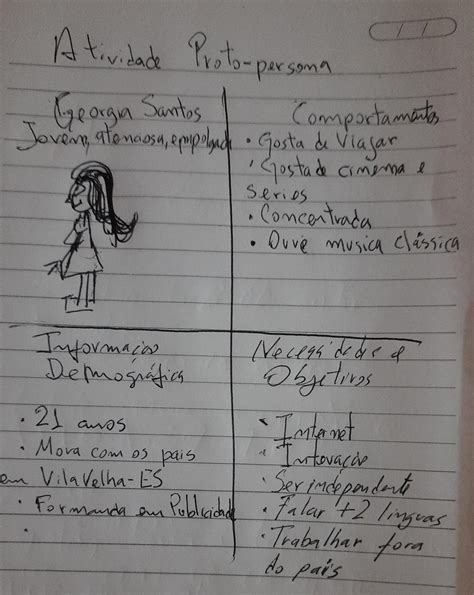 Atividade Proto-persona
Georgia Santos
Jovem, atenciosa, empolgada
Comportamentos
• Gosta de Viajar
• Gosta de cinema e
series
• Concentrada
• Ouve musica clássica
Informação
Demográfica
• 21 anos
• Mora com os pais
em Vila Velha-ES
• Formanda em Publicidade
•
Necessidades e
Objetivos
• Internet
• Inovação
• Ser independente
• Falar +2 linguas
• Trabalhar fora
do país